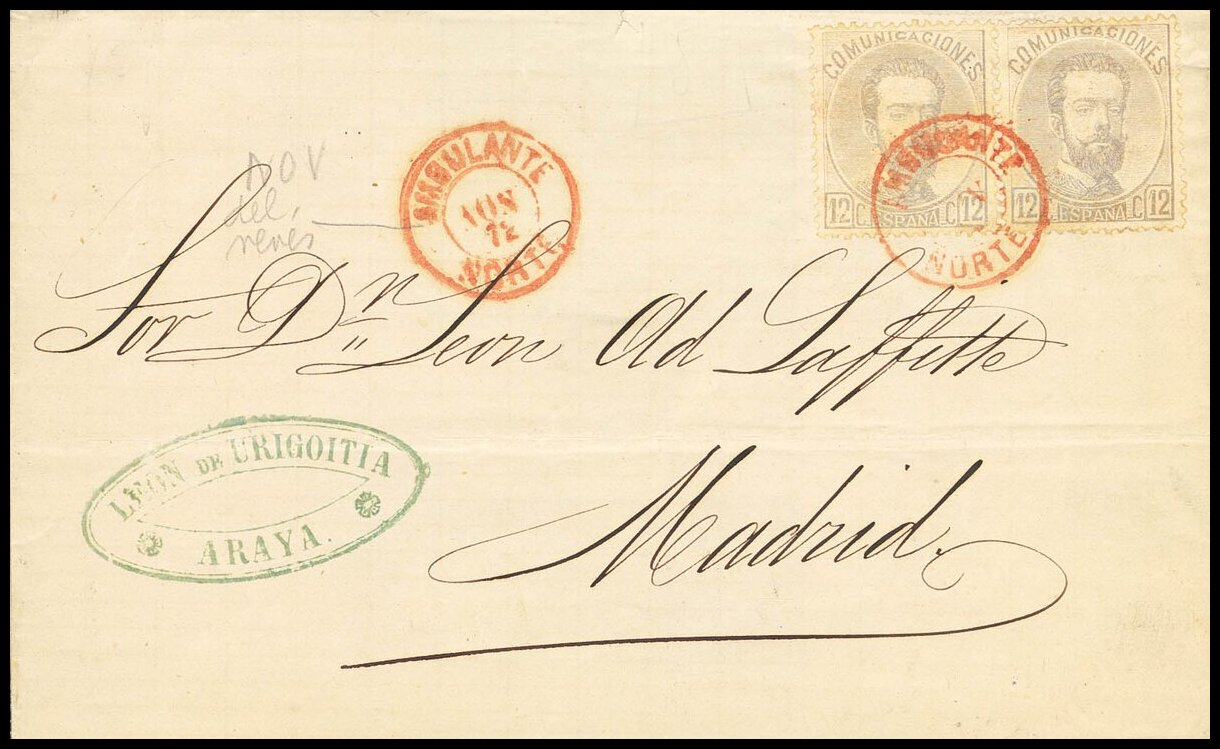 COMUNICACIONES
12 C. ESPAÑA C 12
COMUNICACIONES
12 C. ESPAÑA C 12
AMBULANTE
NORTE
AMBULANTE
72
NORTE
NOV
del
reves
Sor Dn Leon Ad Laffitte
Madrid.
LEON DE URIGOITIA
ARAYA.